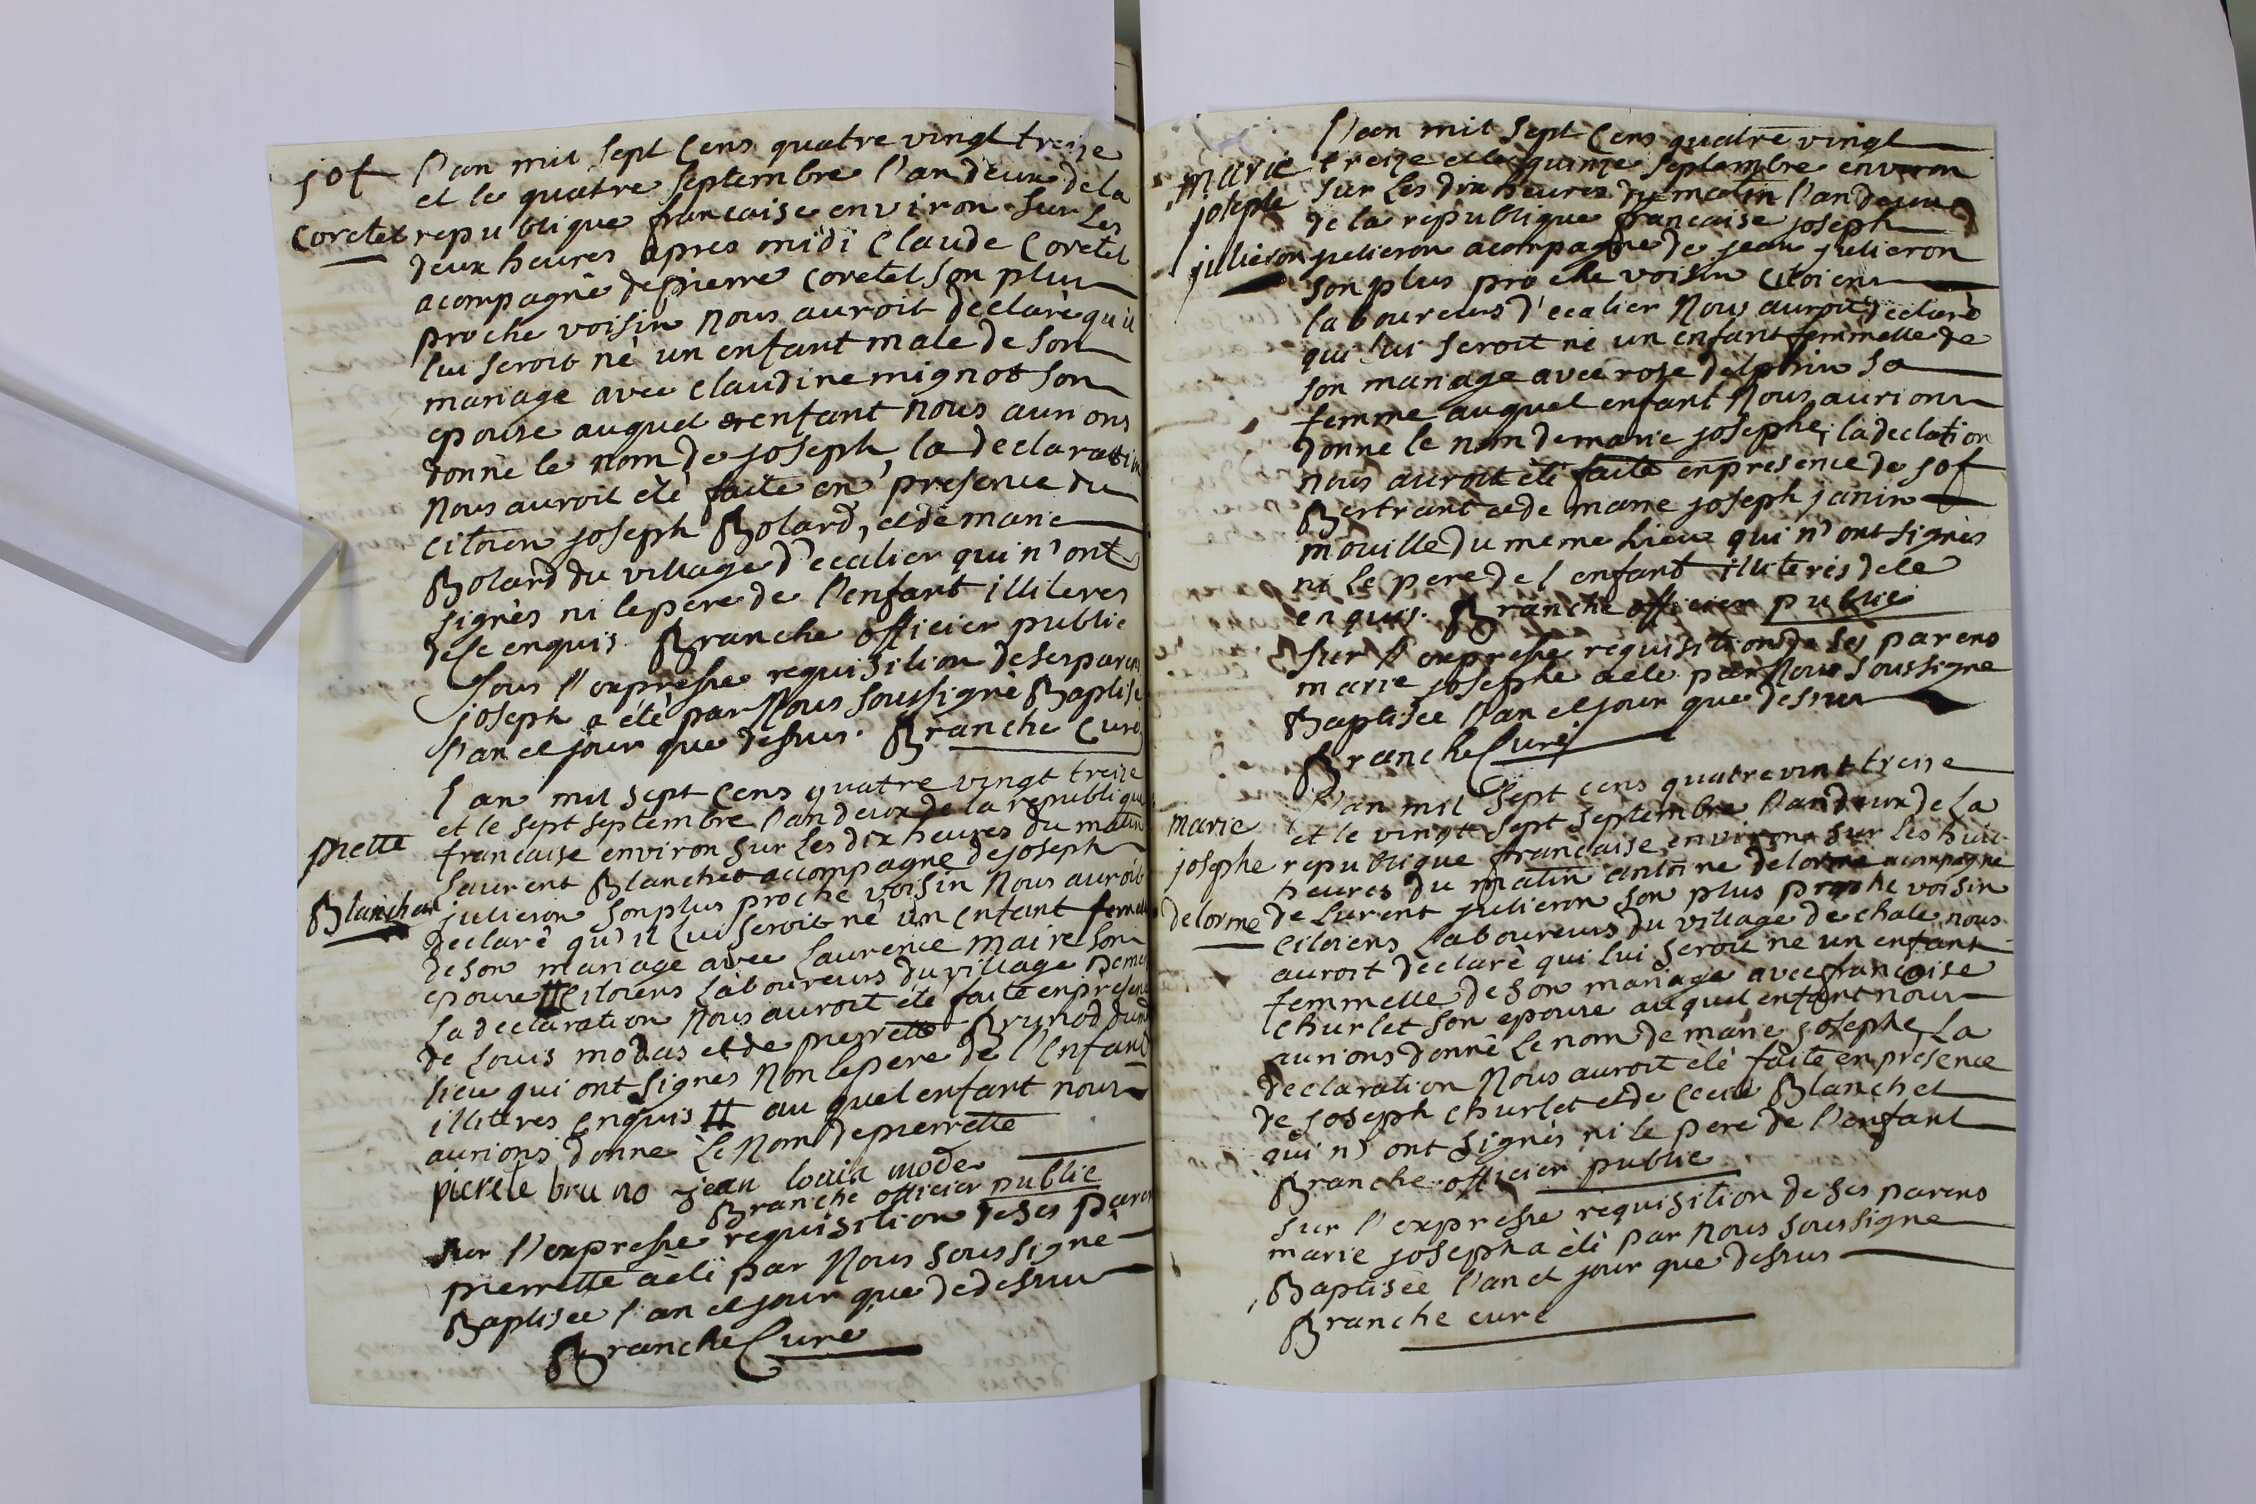 jos
Coretet
L'an mil sept cens quatre vingt treize
et le quatre septembre l'an deux de la
republique francaise environ sur les
deux heures apres midi Claude Coretet
acompagné de pierre coretet son plus
proche voisin nous auroit declaré qu'il
lui seroit né un enfant male de son
mariage avec claudine mignot son
epouse auquel enfant nous aurions
donné le nom de joseph, la declaration
nous auroit été faite en presence du
citoien joseph Bolard, et de marie
Bolard du village d'ecalier qui n'ont
signés ni le pere de l'enfant illiteres
de ce enquis. Branche officier public
sous l'expresse requisition de ses parens
joseph a été par nous soussigné Baptisé
l'an et jour que dessus. Branche Curé
prette
Blanchet
l'an mil sept cens quatre vingt treize
et le sept septembre l'an deux de la republique
francaise environ sur les dix heures du matin
laurent Blanchet accompagne de joseph
julieron son plus proche voisin nous auroit
declaré qu'il lui seroit né un enfant femelle
de son mariage avec laurence maire son
epouse # citoiens laboureurs du village
la declaration nous auroit été faite en presence
de louis modas et de pierrette Brunod du
lieu qui ont signes non le pere de l'enfant
illiteres enquis # au quel enfant nous
aurions donné le nom de pierrette
pierete bruno jean louis mode
Branche officier public
sur l'expresse requisition de ses parens
pierrette a eté par nous soussigné
Baptisée l'an et jour que de dessus
Branche Curé
marie
josephe
julieron
L'an mil sept cens quatre vingt
treize et le quinze septembre environ
sur les dix heures du matin l'an deux
de la republique francaise joseph
julieron acompagne de jean julieron
son plus proche voisin citoiens
laboureurs d'ecalier nous auroit declaré
qui lui seroit né un enfant femmelle de
son mariage avec rose delphin sa
femme auquel enfant nous aurions
donne le nom de marie josephe, la declation
nous auroit été faite en presence de jos
Bertrant et de marie joseph janin
mouille du meme lieu qui n'ont signés
ni le pere de l'enfant illiterés de ce
enquis. Branche officier public
sur l'expresse requisition de ses parens
marie josephe a été par nous soussigne
Baptisée l'an et jour que dessus
Branche Curé
marie
josephe
delorme
L'an mil sept cens quatre vint treise
et le vingt sept septembre l'an deux de la
republique francaise environ sur les huit
heures du matin antoine delorme acompagne
de laurent julieron son plus proche voisin
citoiens laboureurs du village de chale nous
auroit declaré qui lui seroit né un enfant
femmelle de son mariage avec francoise
Churlet son epouse au quel enfant nous
aurions donné le nom de marie josephe, la
declaration nous auroit été faite en présence
de joseph Churlet et de cecile Blanchet
qui n'ont signés ni le pere de l'enfant
Branche officier public
sur l'expresse requisition de ses parens
marie joseph a été par nous soussigne
Baptisée l'an et jour que dessus
Branche curé